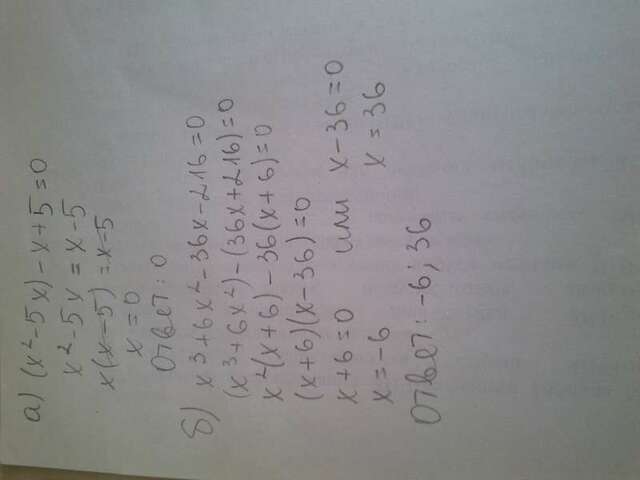 а) (x²-5x)-x+5=0
x²-5x=x-5
x(x-5)=x-5
x=0
Ответ: 0
б) x³+6x²-36x-216=0
(x³+6x²)-(36x+216)=0
x²(x+6)-36(x+6)=0
(x+6)(x-36)=0
x+6=0 или x-36=0
x=-6 x=36
Ответ: -6; 36